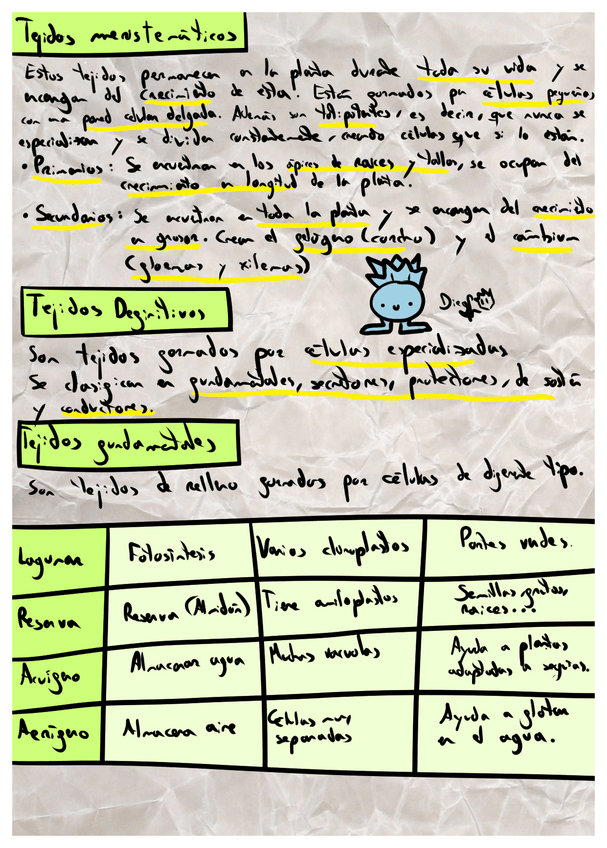 Tejidos meristemáticos
Estos tejidos permanecen en la planta durante toda su vida y se
encargan del crecimiento de esta. Están formados por células pequeñas
con una pared celular delgada. Además son totipotentes, es decir, que nunca se
especializan y se dividen constantemente, creando células que si lo están.
• Primarios: Se encuentran en los ápices de raíces y tallos, se ocupan del
crecimiento en longitud de la planta.
• Secundarios: Se encuentran en toda la planta y se encargan del crecimiento
en grosor. Crean el felógeno (corcho) y el cambium
(floemas y xilemas)
Tejidos Definitivos
Son tejidos formados por células especializadas
Se clasifican en fundamentales, secretores, protectores, de sostén
y conductores.
Tejidos fundamentales
Son tejidos de relleno formados por células de diferente tipo.
Lagunar Fotosíntesis Varios cloroplastos Partes verdes.
Reserva Reserva (Almidón) Tiene amiloplastos Semillas, frutos, raíces...
Acuífero Almacenar agua Muchas vacuolas Ayuda a plantas adaptadas a sequías.
Aerífero Almacena aire Células muy separadas Ayuda a flotar en el agua.